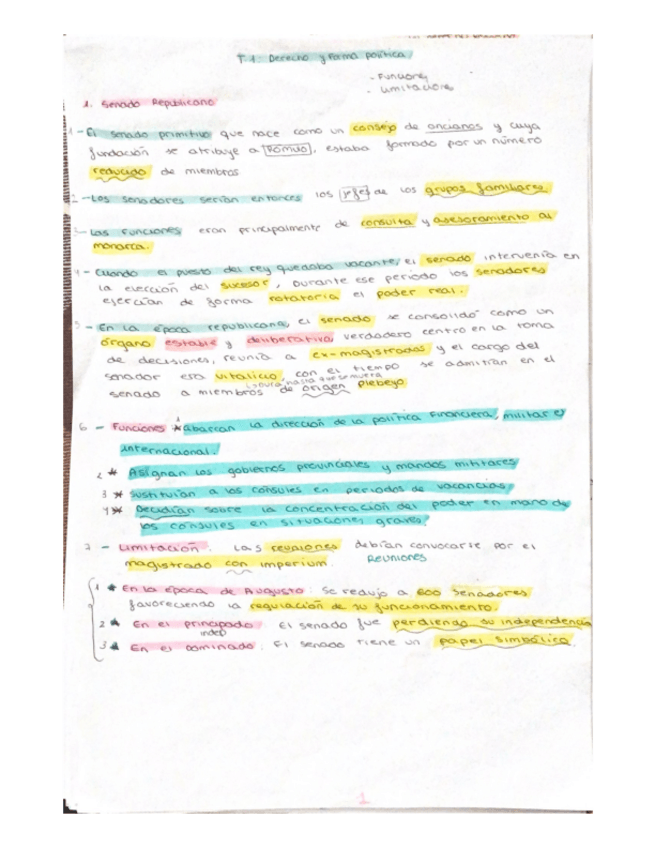 T.1: Derecho y forma política
- Funciones
- Limitaciones
1. Senado Republicano
1- El senado primitivo que nace como un consejo de ancianos y cuya
fundación se atribuye a Rómulo, estaba formado por un número
reducido de miembros
2 -Los senadores serían entonces los jefes de los grupos familiares.
3- Las funciones eran principalmente de consulta y asesoramiento al
monarca.
4- Cuando el puesto del rey quedaba vacante, el senado intervenía en
la elección del sucesor, Durante ese periodo los senadores
ejercían de forma rotatoria el poder real.
5- En la época republicana, el senado se consolidó como un
órgano estable y deliberativo, verdadero centro en la toma
de decisiones, reunía a ex-magistrados y el cargo del
senador era vitalicio, con el tiempo se admitían en el
hasta que se muera
senado a miembros de origen plebeyo.
6 - Funciones 1* abarcan la dirección de la política Financiera, militar e
internacional.
2 * Asignan los gobiernos provinciales y mandos militares
3 * Sustituían a los cónsules en periodos de vacancias.
4 * Decidían sobre la concentración del poder en mano de
los cónsules en situaciones graves.
7 - Limitación: Las reuniones debían convocarse por el
Reuniones
magistrado con imperium.
1 * En la época de Augusto: Se redujo a 600 Senadores
favoreciendo la regulación de su funcionamiento.
2 * En el principado: El senado fue perdiendo su independencia
indep
3 * En el dominado: El senado tiene un papel simbólico.
1